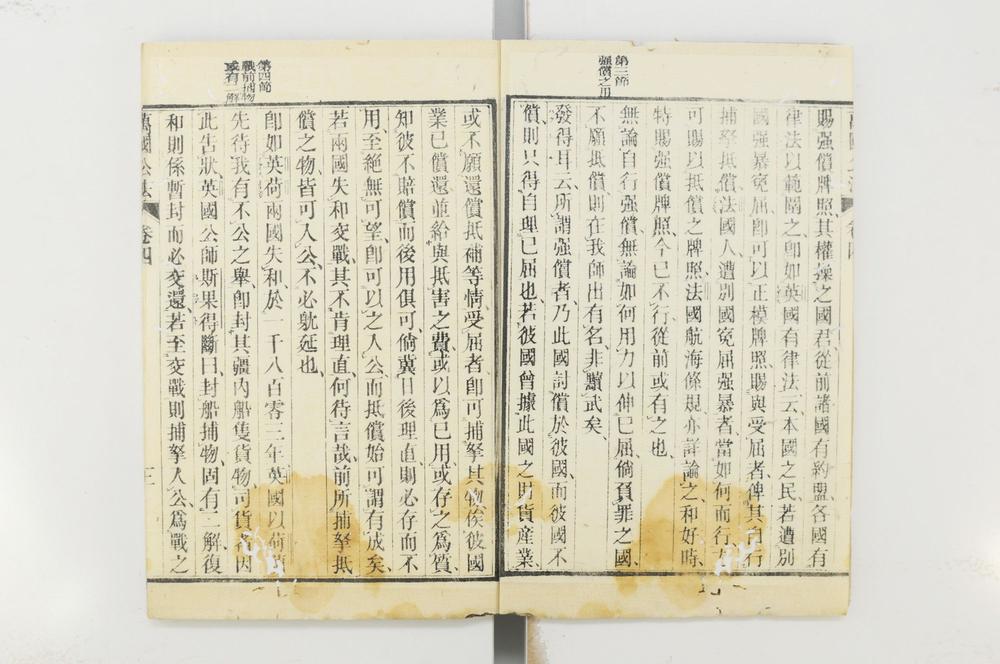 第三節
強償之用
賜强償牌照、其權操之國君、從前諸國有約盟、各國有
律法以範圍之、卽如英國有律法云、本國之民、若遭別
國强暴寃屈、卽可以正模牌照、賜與受屈者、俾其自行
捕拏抵償、法國人遭別國寃屈强暴者、當如何而行、
可賜以抵償之牌照、法國航海條規、亦詳論之、和好時、
特賜强償牌照、今已不行、從前或有之也、
無論自行强償、無論如何用力以伸己屈、倘負罪之國、
不願抵償、則在我師出有名、非黷武矣、
發得耳云、所謂强償者、乃此國討償於彼國、而彼國不
償、則只得自理己屈也、若彼國曾據此國之財貨産業、
第四節
戰前捕物
或有二解
或不願還償抵補等情、受屈者卽可捕拏其物、俟彼國
業已償還、並給與抵害之費、或以爲己用、或存之爲質、
知彼不賠償、而後用俱可、倘冀日後理直、則必存而不
用、至絕無可望、卽可以之入公、而抵償始可謂有成矣、
若兩國失和交戰、其不肯理直、何待言哉、前所捕拏抵
償之物、皆可入公、不必躭延也、
卽如英荷兩國失和、於一千八百零三年、英國以荷
先待我有不公之舉、卽封其疆內船隻貨物、可貨 因
此告狀、英國公師斯果得斷曰、封船捕物、固有二解、復
和則係暫封而必交還、若至交戰、則捕拏入公、爲戰之
萬國公法
卷四
三